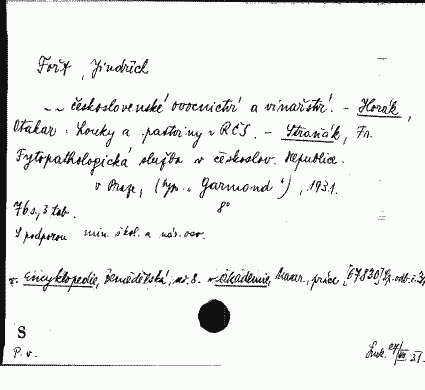 Fořt, Jindřich
~~ československé ovocnictví a vinařství. - Horák,
Otakar. Louky a pastviny v RČS. - Straňák, Fr.
Fytopathologická služba v českoslov. republice.
v Praze, („Garmond“), 1931.
76 s, 3 tab. 8°
S podporou min. škol. a nár. osv.
Encyklopedie, zemědělská, akademie, práce
S
P. v.